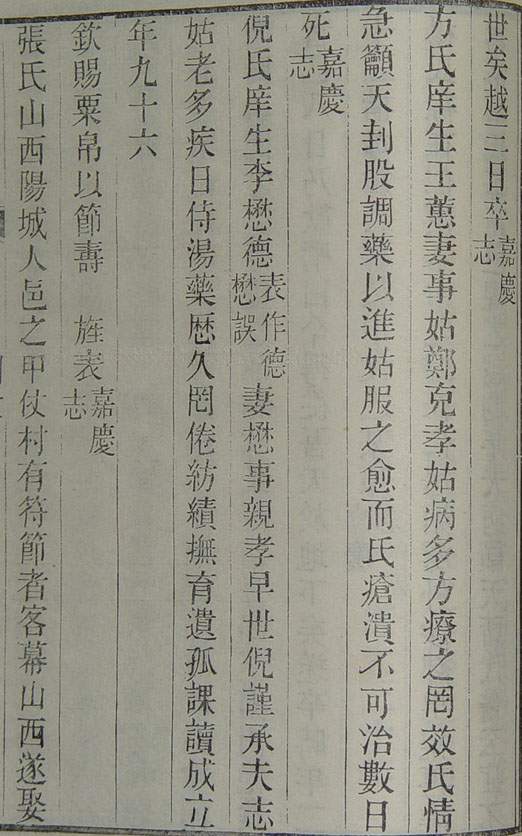 世矣越三日卒嘉慶志
方氏庠生王蕙妻事姑鄭克孝姑病多方療之罔效氏情
急籲天刲股調藥以進姑服之愈而氏瘡潰不可治數日
死嘉慶志
倪氏庠生李懋德表作德懋誤妻懋事親孝早世倪謹承夫志
姑老多疾日侍湯藥歷久罔倦紡績撫育遺孤課讀成立
年九十六
欽賜粟帛以節壽 旌表嘉慶志
張氏山西陽城人邑之甲仗村有符節者客幕山西遂娶